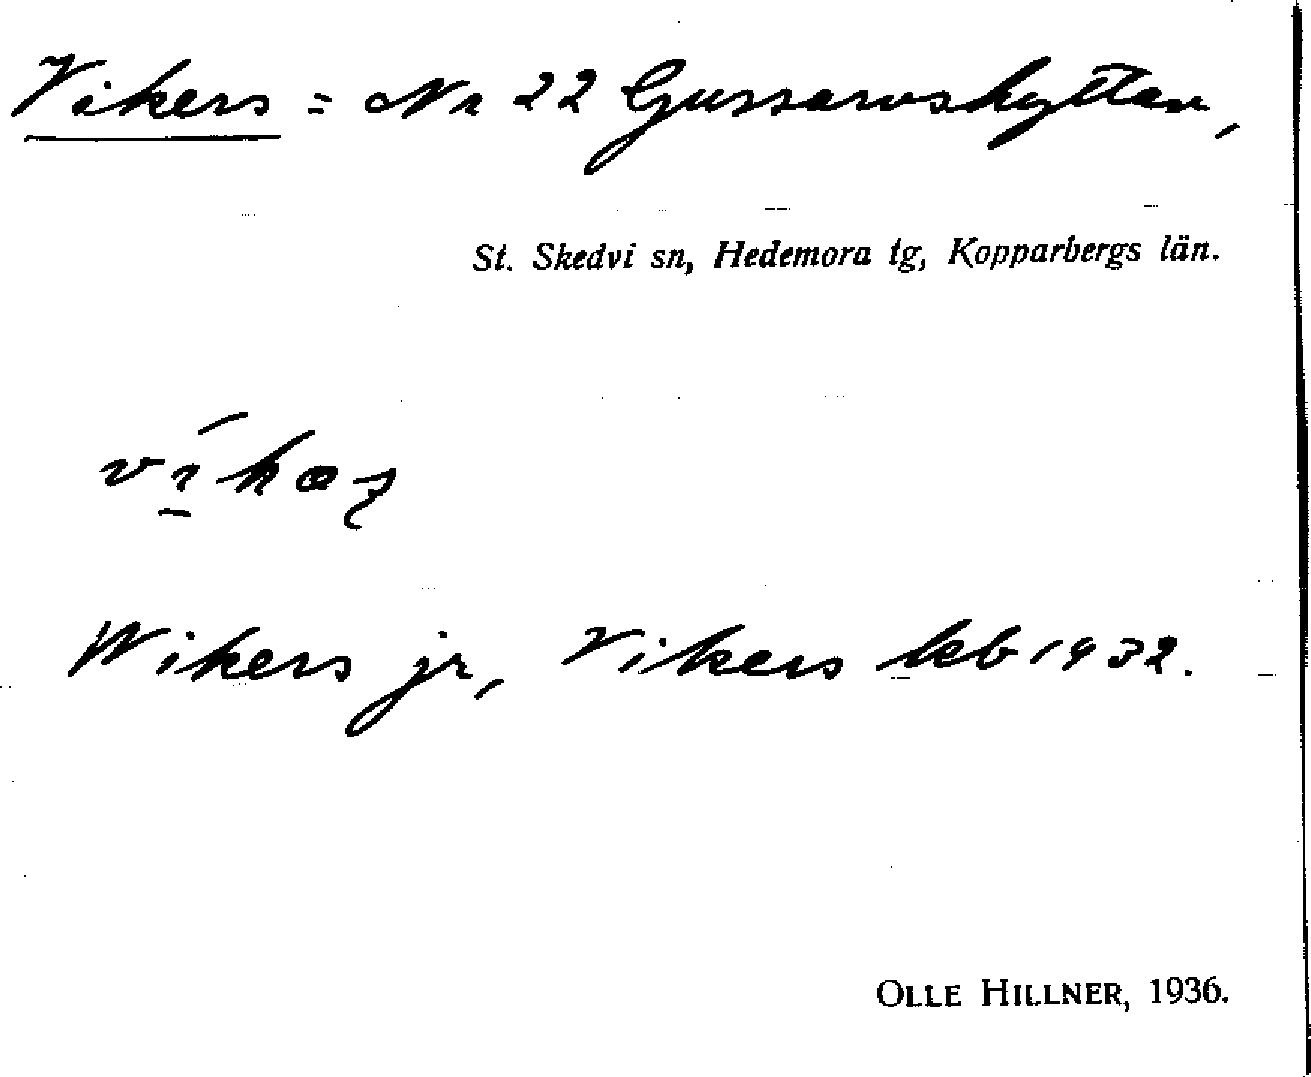 Vikers = Nr 22 Gussarvshyttan,
St. Skedvi sn, Hedemora tg, Kopparbergs län.
Wikers jr, Vikers kb 1932.
OLLE HILLNER, 1936.